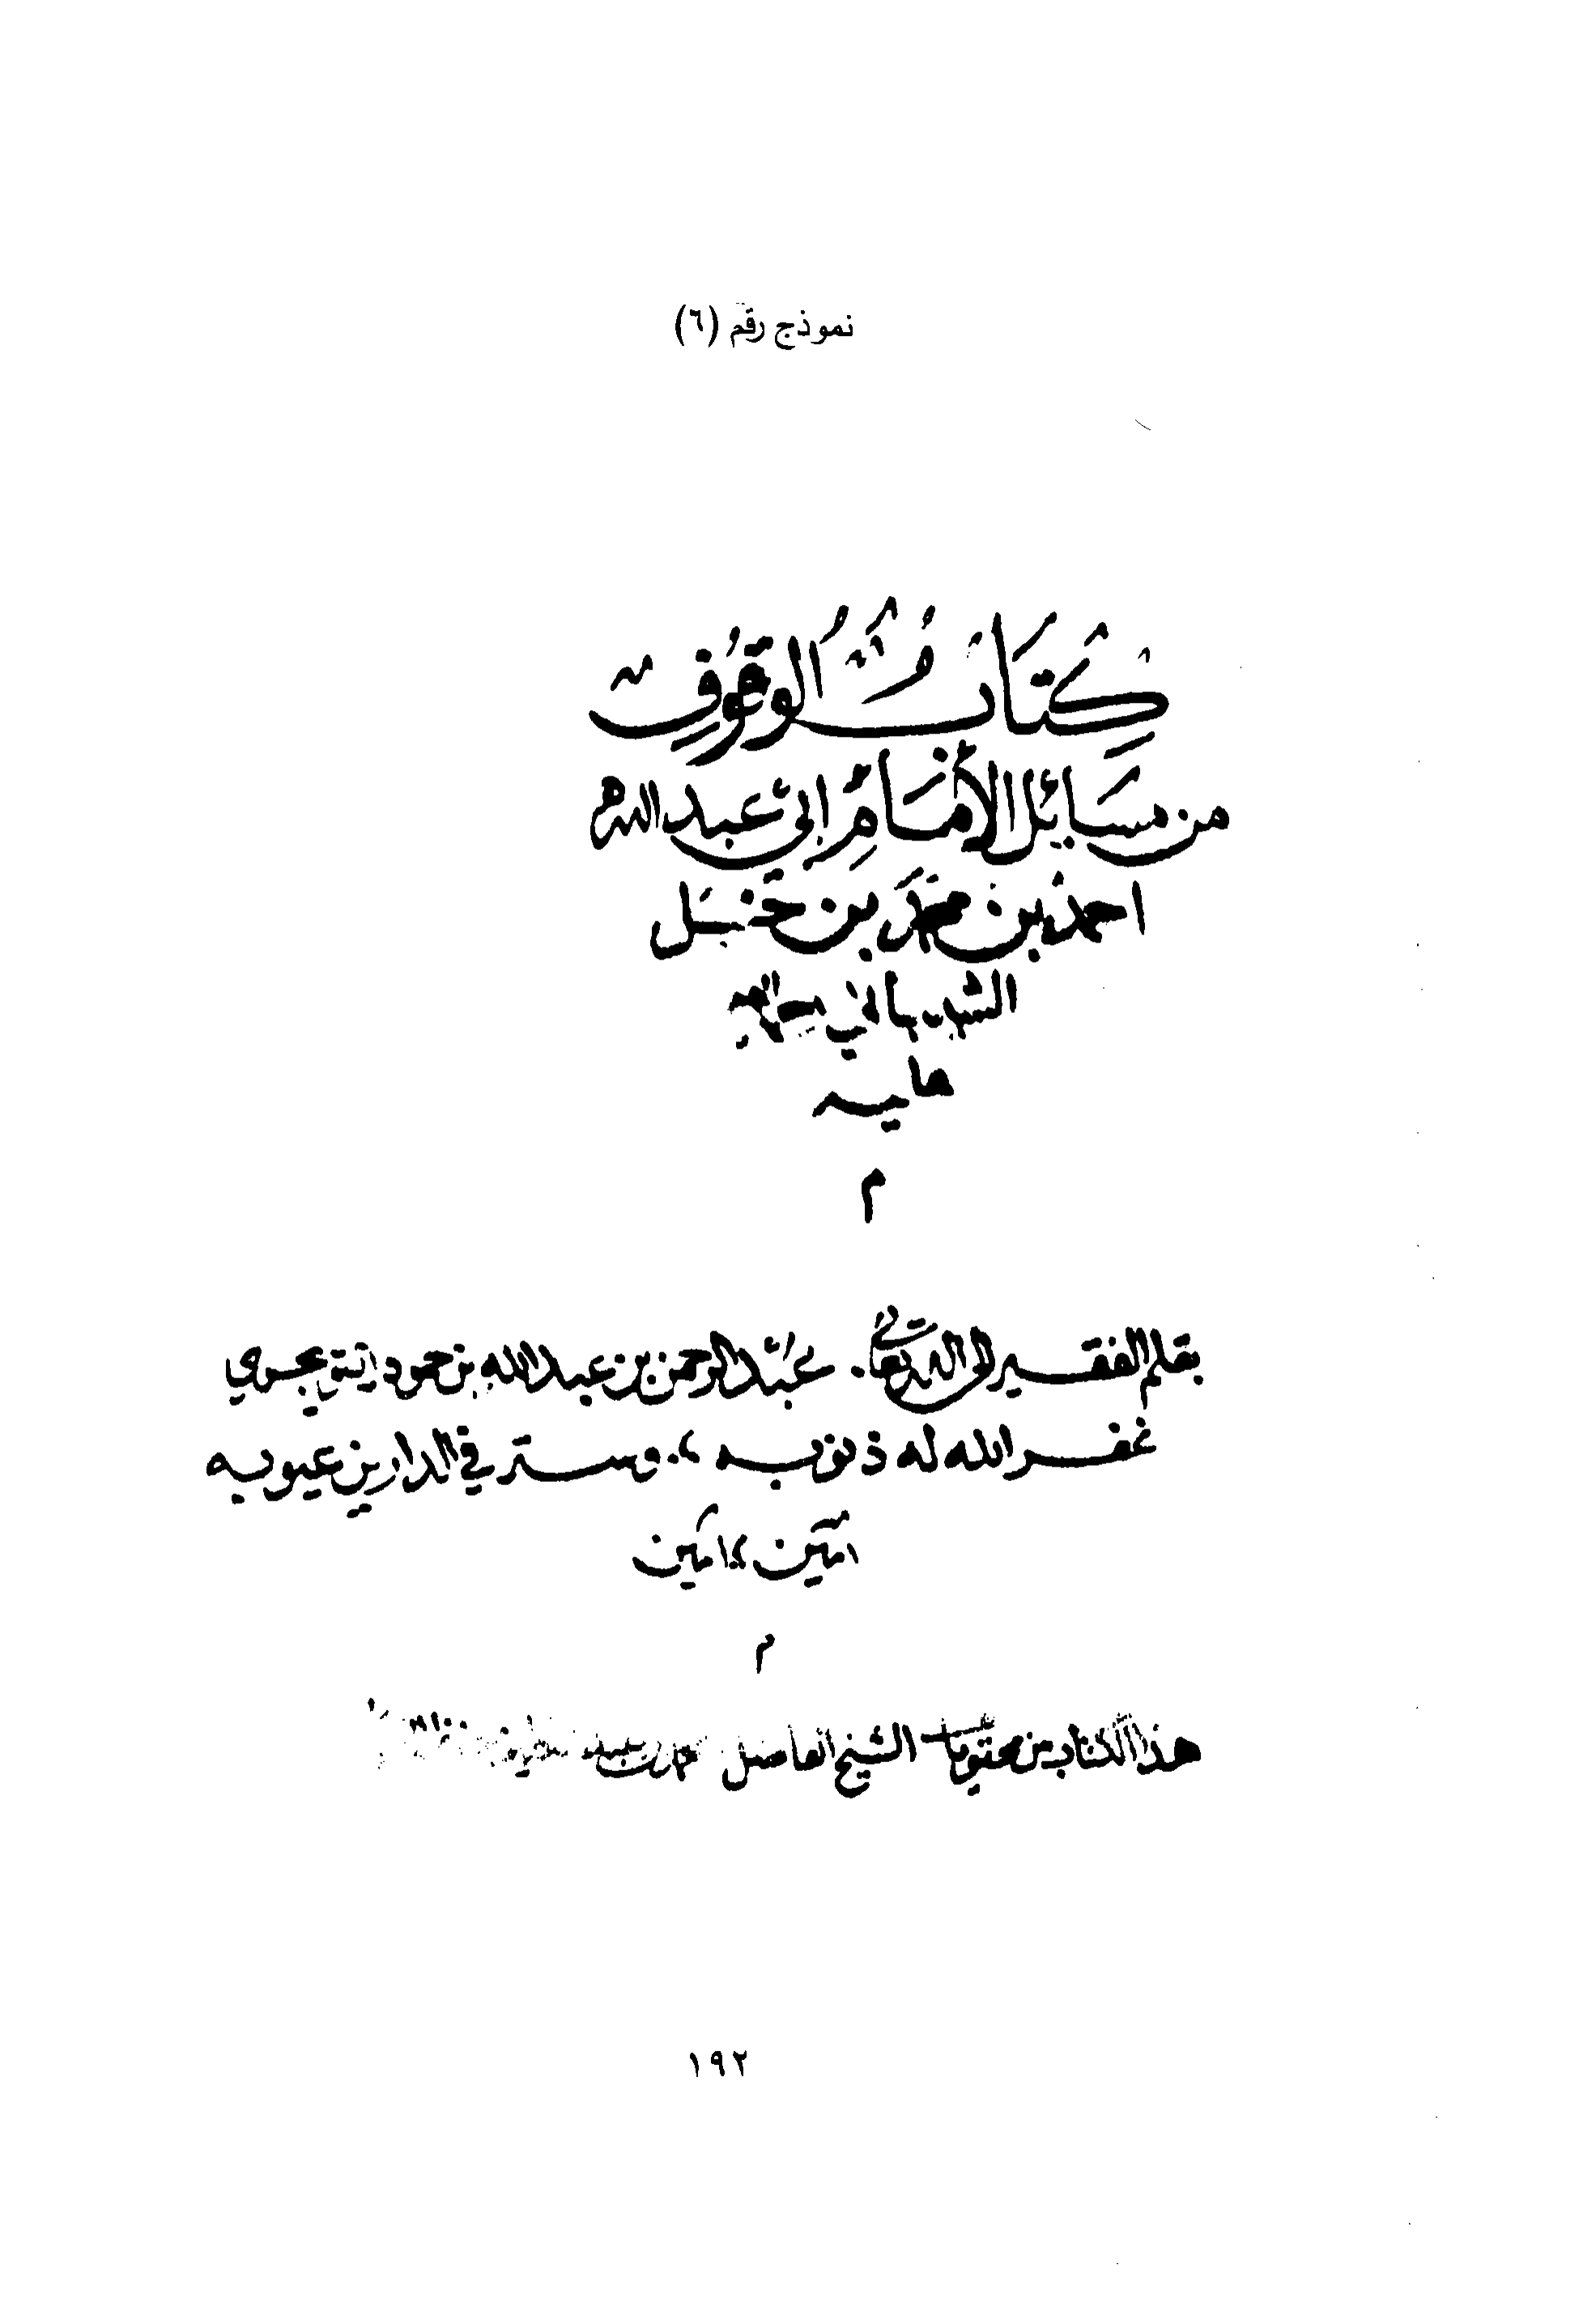 نموذج رقم (٦)
كتاب الوقوف
من مسائل الامام ابي عبد الله
احمد بن محمد بن حنبل
الشيباني رحمة الله
عليه
م
بقلم الفقير الى الله تعالى عبد الرحمن بن عبد الله بن حمود
غفر الله له ذنوبه وستر في الدارين عيوبه
امين امين
م
هذا الكتاب من محتويات الشيخ الفاضل
١٩٢